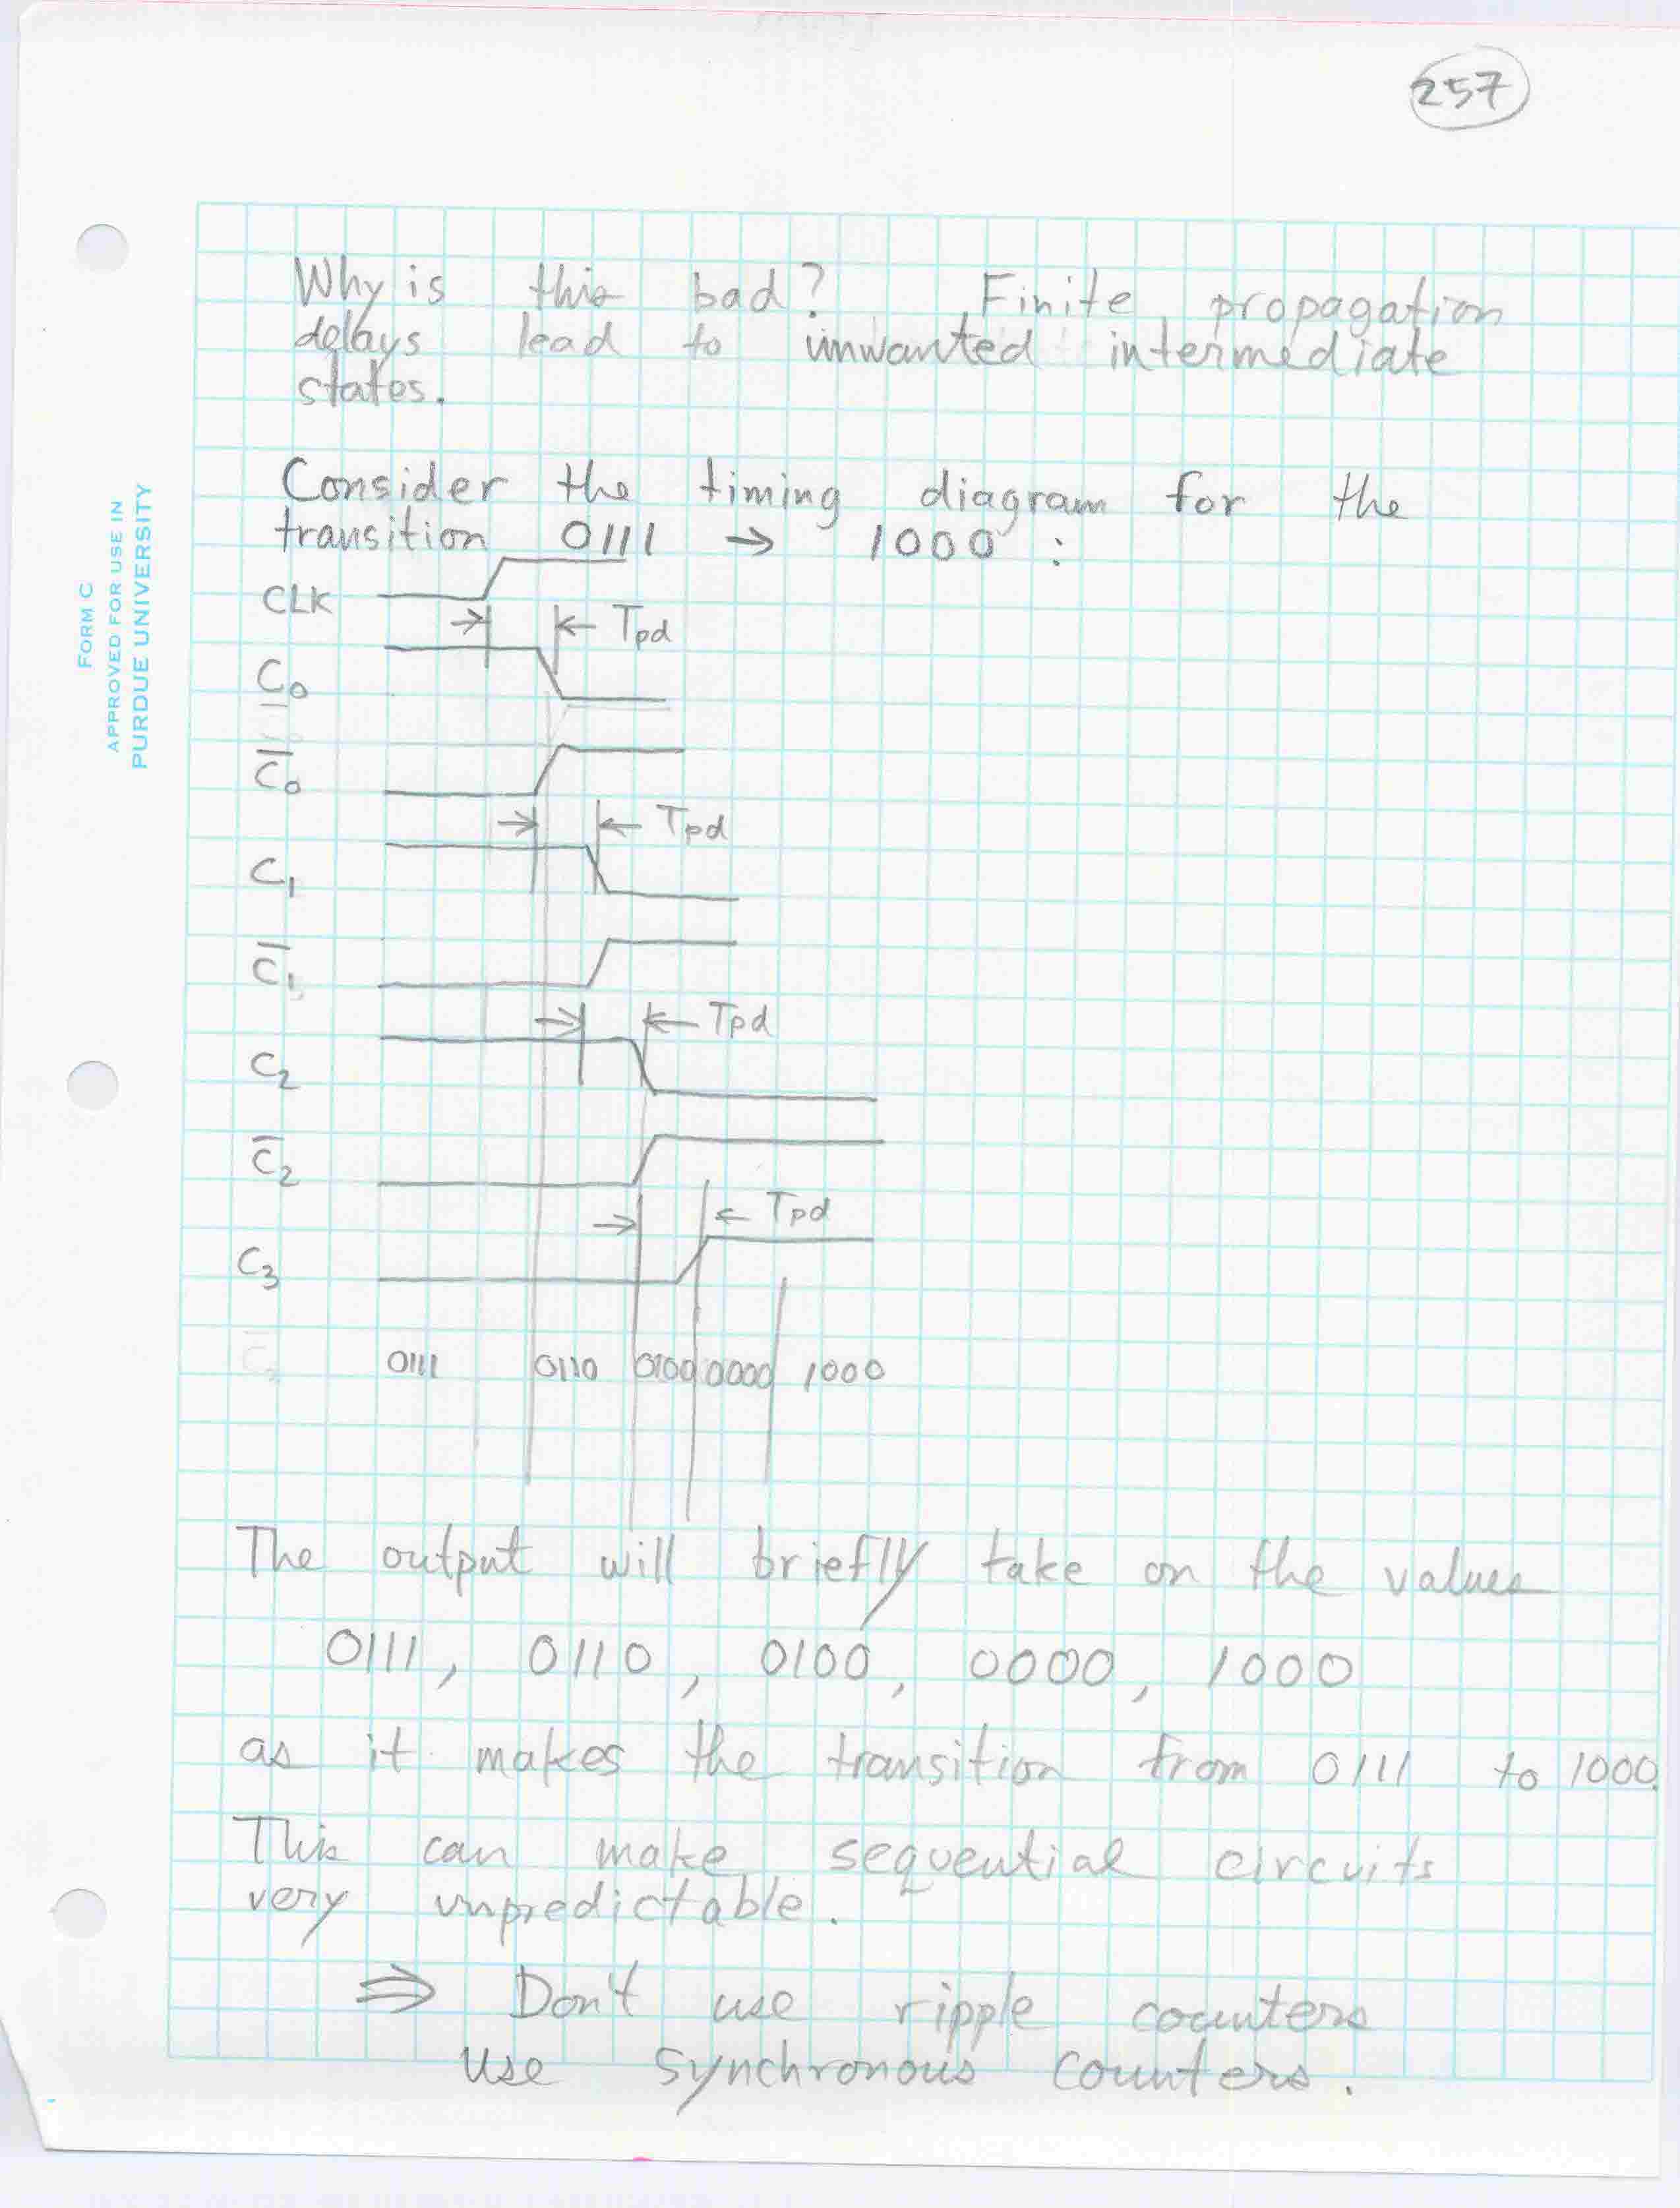 257
Why is this bad? Finite propagation
delays lead to unwanted intermediate
states.
FORM C
APPROVED FOR USE IN
PURDUE UNIVERSITY
Consider the timing diagram for the
transition 0111 → 1000 :
CLK
Tpd
C₀
C̅₀
Tpd
C₁
C̅₁
Tpd
C₂
C̅₂
Tpd
C₃
0111 0110 0100 0000 1000
The output will briefly take on the values
0111, 0110, 0100, 0000, 1000
as it makes the transition from 0111 to 1000.
This can make sequential circuits
very unpredictable.
⇒ Don't use ripple counters
Use synchronous counters.